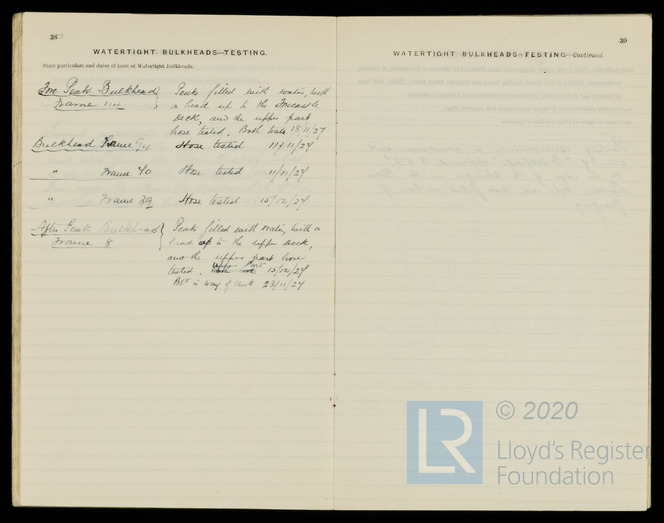 38
WATERTIGHT BULKHEADS—TESTING.
State particulars and dates of tests of Watertight Bulkheads.
Fore Peak Bulkhead } Peak filled with water, with
Frame 114 a head up to the Forecastle
deck, and the upper part
hose tested. Both tests 18/11/24
Bulkhead Frame 94 Hose tested 11/11/24
" Frame 40 Hose tested 11/11/24
" Frame 29 Hose tested 15/12/24
After Peak Bulkhead } Peak filled with water, with a
Frame 8 head up to the upper deck,
and the upper part hose
tested. 15/12/24
in way of tank 23/11/24
39
WATERTIGHT BULKHEADS—TESTING—Continued.
LR © 2020
Lloyd's Register
Foundation